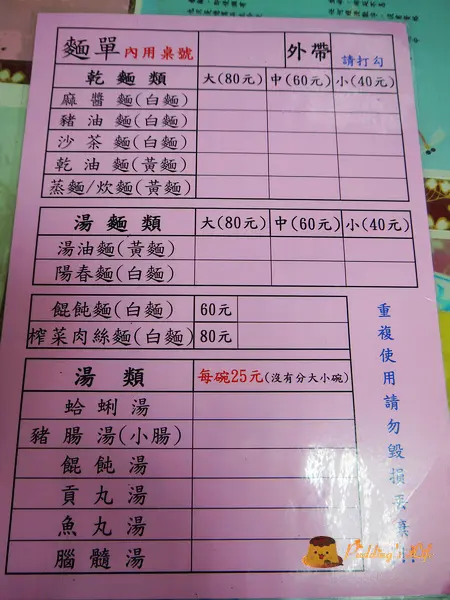 麵單 內用桌號 外帶 請打勾
乾麵類 大(80元) 中(60元) 小(40元)
麻醬麵(白麵)
豬油麵(白麵)
沙茶麵(白麵)
乾油麵(黃麵)
蒸麵/炊麵(黃麵)
湯麵類 大(80元) 中(60元) 小(40元)
湯油麵(黃麵)
陽春麵(白麵)
餛飩麵(白麵) 60元
榨菜肉絲麵(白麵) 80元
湯類 每碗25元(沒有分大小碗)
蛤蜊湯
豬腸湯(小腸)
餛飩湯
貢丸湯
魚丸湯
腦髓湯
重複使用請勿毀損丟棄!!